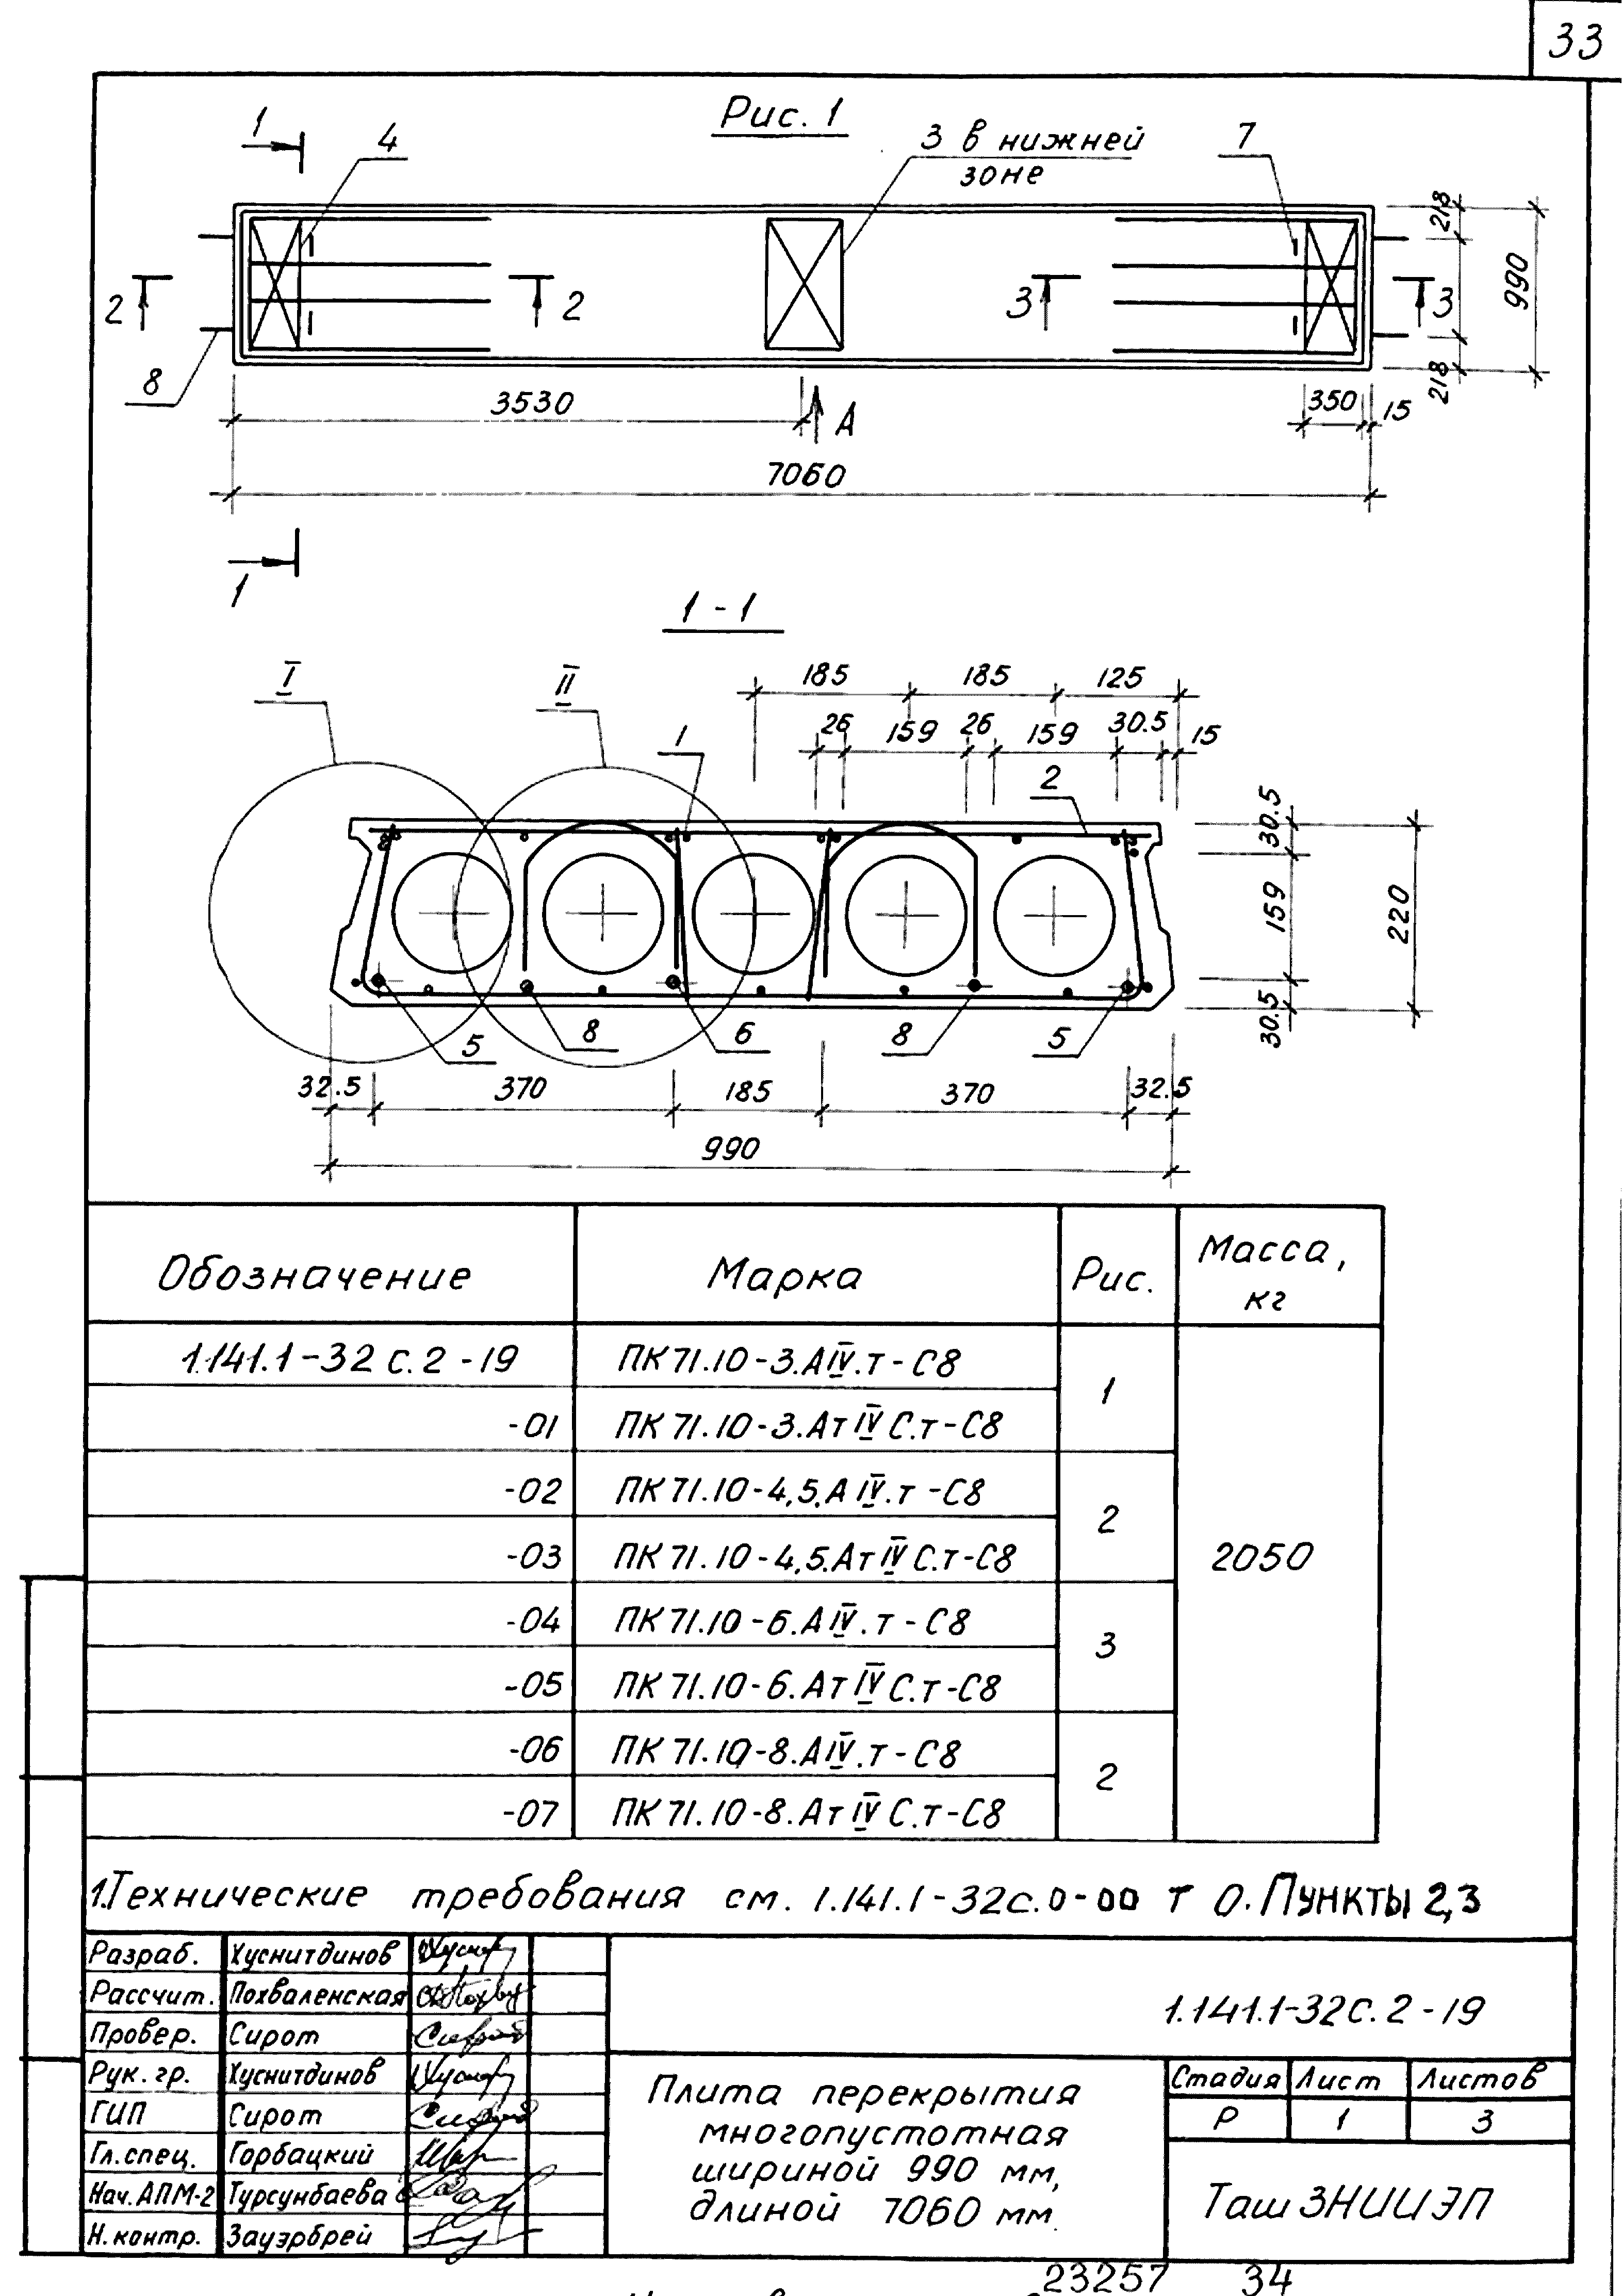 33
Рис. 1
1
4
3 в нижней
зоне
7
218
990
2
2
3
3
8
218
3530
А
350
15
7060
1
1-1
I
II
185
185
125
1
26
159
26
159
30.5
15
2
30.5
159
220
30.5
5
8
6
8
5
32.5
370
185
370
32.5
990
Обозначение
Марка
Рис.
Масса,
кг
1.141.1-32 с. 2 -19
ПК 71.10-3.АIV.т-С8
1
-01
ПК 71.10-3.АтIVС.т-С8
-02
ПК 71.10-4,5.АIV.т-С8
2
-03
ПК 71.10-4,5.АтIVС.т-С8
2050
-04
ПК 71.10-6.АIV.т-С8
3
-05
ПК 71.10-6.АтIVС.т-С8
-06
ПК 71.10-8.АIV.т-С8
2
-07
ПК 71.10-8.АтIVС.т-С8
1.Технические требования см. 1.141.1-32с.0-00 т 0. Пункты 2,3
Разраб. Хуснитдинов
Рассчит. Похваленская
Провер. Сирот
Рук. гр. Хуснитдинов
ГИП Сирот
Гл. спец. Горбацкий
Нач. АПМ-2 Турсунбаева
Н. контр. Зауэрбрей
1.141.1-32с. 2 -19
Плита перекрытия
многопустотная
шириной 990 мм,
длиной 7060 мм.
Стадия Лист Листов
Р 1 3
ТашЗНИИЭП
23257 34